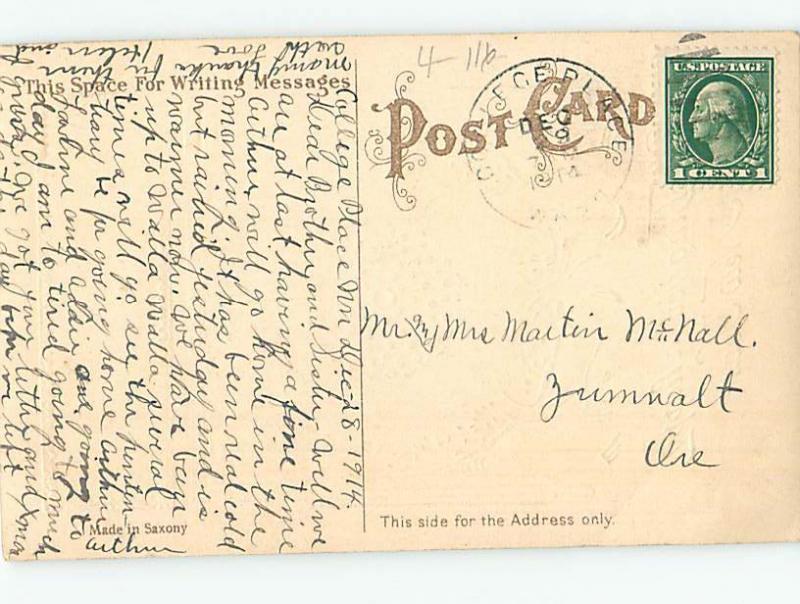 4 11b
This Space For Writing Messages
POST CARD
COLLEGE PLACE
DEC
1914
WASH
U.S. POSTAGE
1 CENT 1
College Place Wn Dec-28-1914.
Dear Brother and Sister. Well we
are at last having a fine time
Arthur will go home in the
morning. It has been real cold
but rained yesterday and is
warmer now. We have been
up to Walla Walla several
times will go see the
have to for going home Arthur
and Alair are going to
day I am to tired going to much
We got your letter and Xmas
the day before we left
many thanks for them
with love
Helen and
Arthur
Made in Saxony
Mr. & Mrs Martin McNall.
Zumwalt
Ore
This side for the Address only.